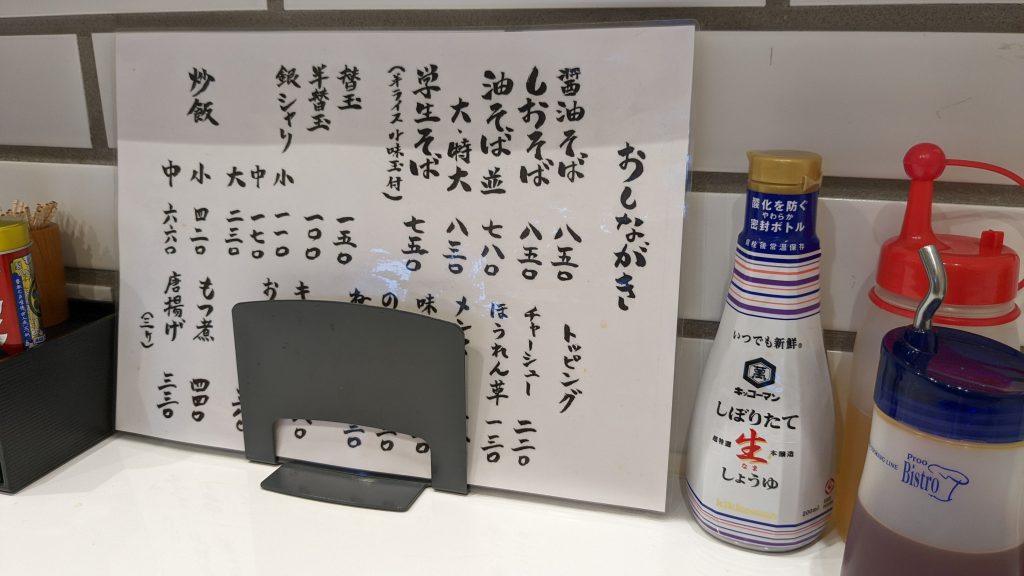 おしながき
醤油そば 八五〇
しおそば 八五〇
油そば 並 七八〇
大・特大 八三〇
学生そば 七五〇
(半ライス 味玉付)
替玉 一五〇
半替玉 一〇〇
銀シャリ 小 一一〇
中 一七〇
大 二三〇
炒飯 小 四二〇
中 六六〇
トッピング
チャーシュー 二二〇
ほうれん草 一三〇
メン
味
の
ね
キ
お
もつ煮 四四〇
唐揚げ 三三〇
酸化を防ぐ
やわらか
密封ボトル
開栓後常温保存
いつでも新鮮®
萬
キッコーマン
しぼりたて
超特選
生
なま
本醸造
しょうゆ
kikkoman
200ml
COOKING LINE
Proo
Bistro